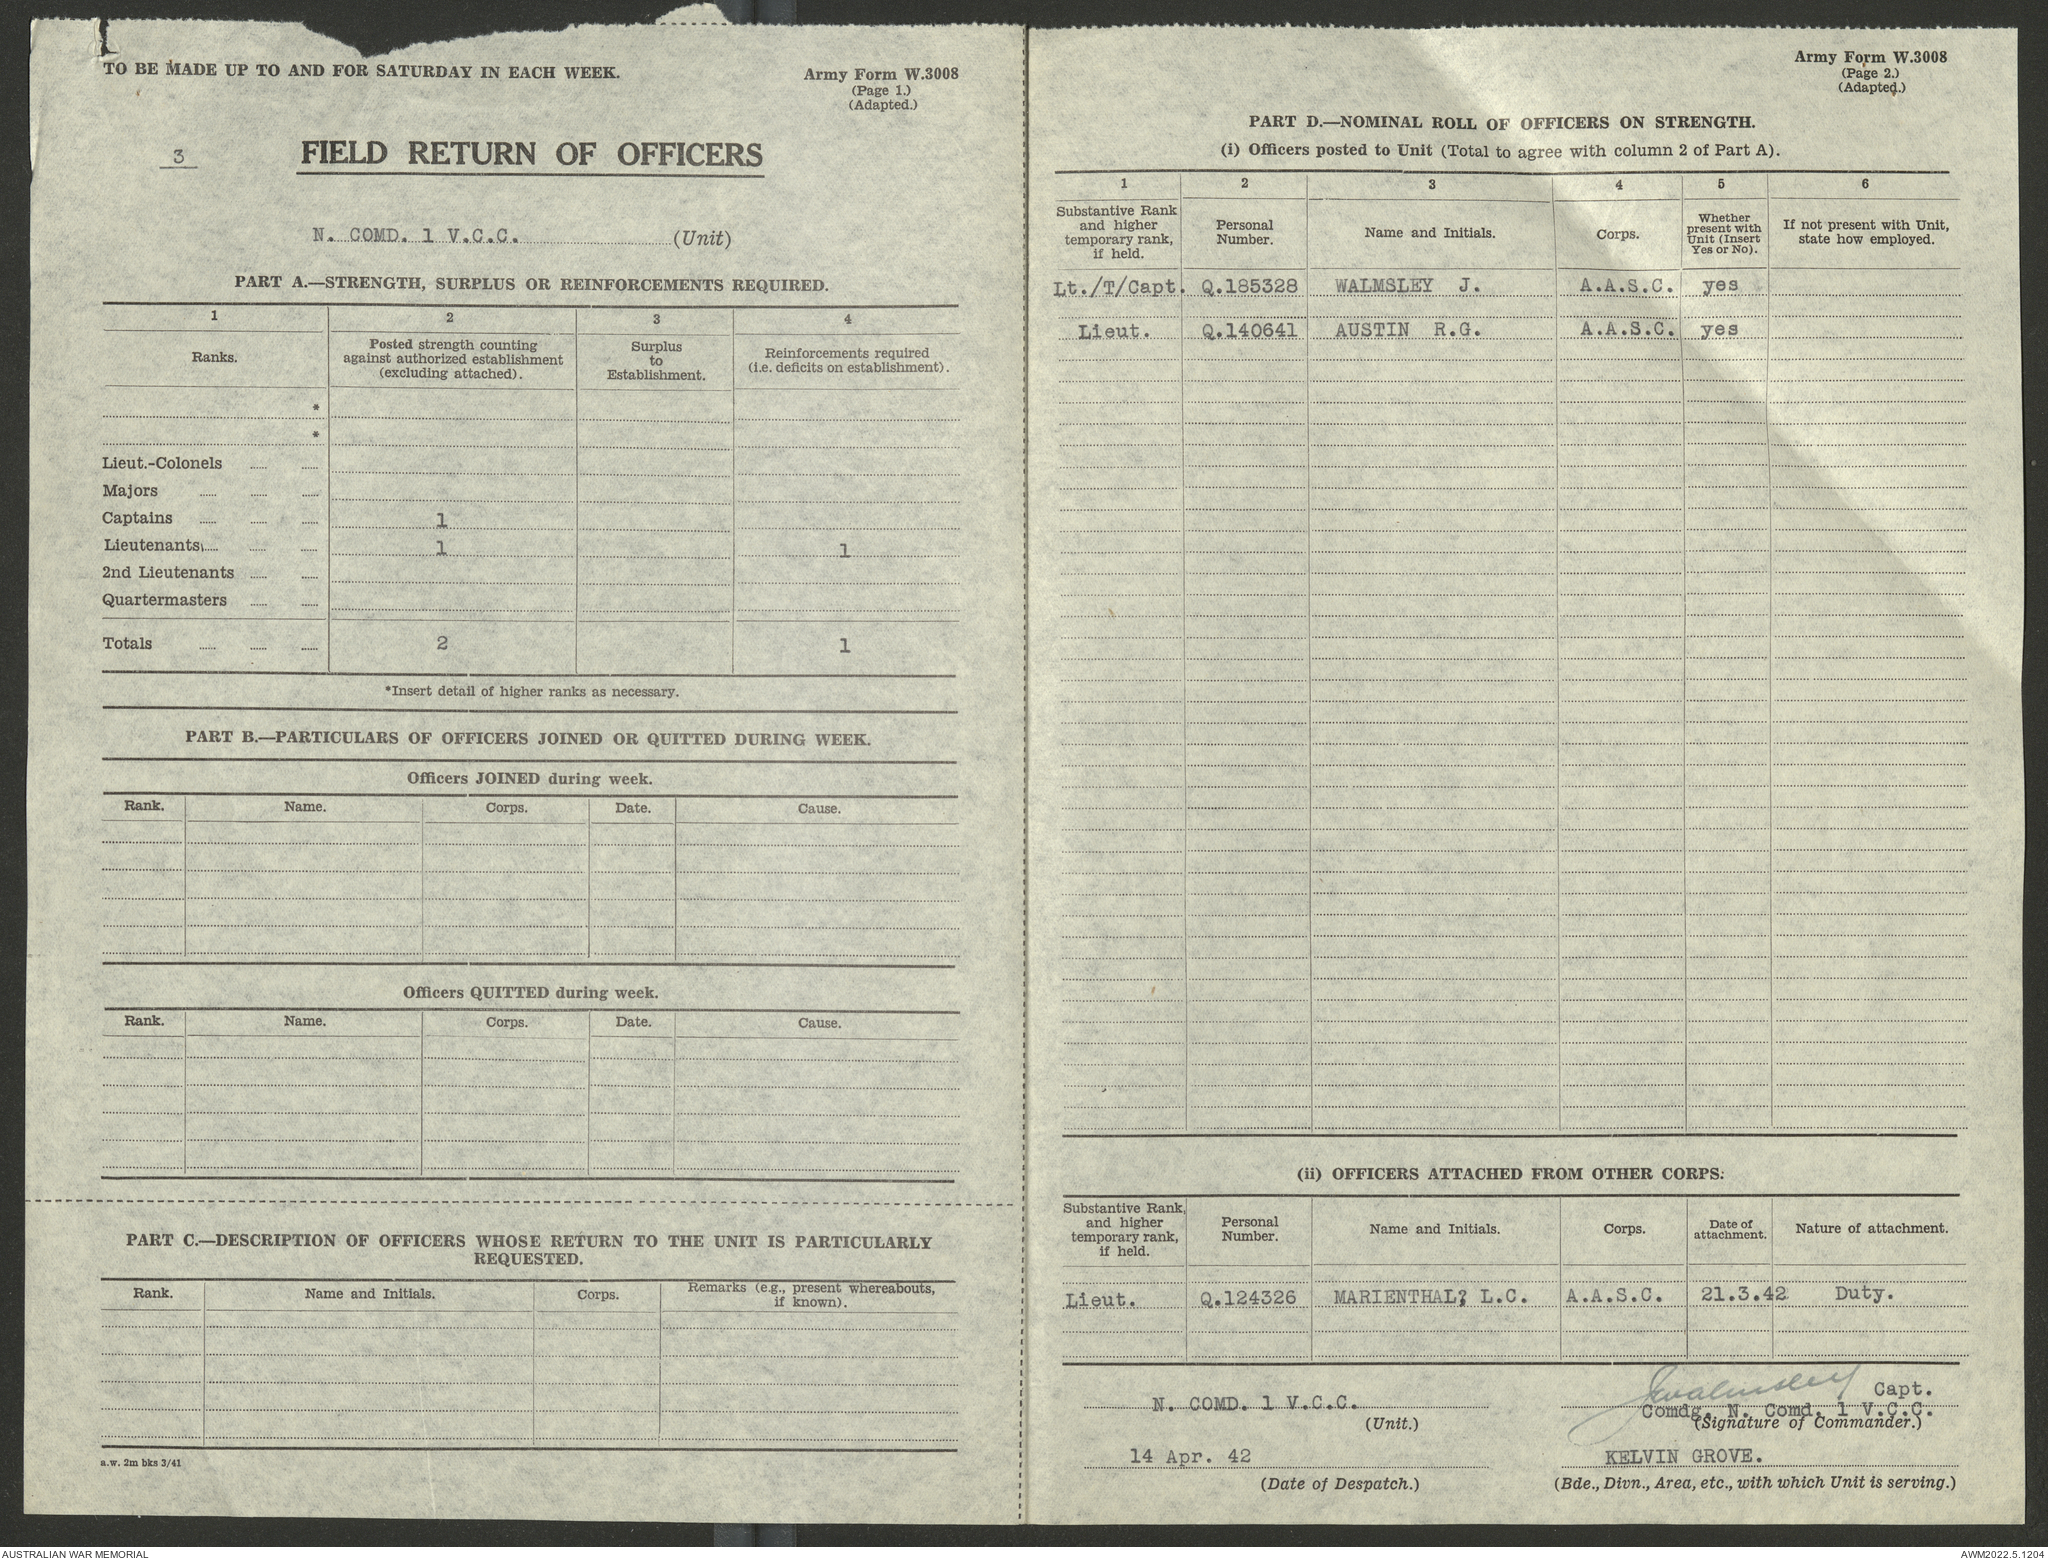 TO BE MADE UP TO AND FOR SATURDAY IN EACH WEEK.
Army Form W.3008
(Page 1.)
(Adapted.)
3
FIELD RETURN OF OFFICERS
N. COMD. 1 V.C.C. (Unit)
PART A.—STRENGTH, SURPLUS OR REINFORCEMENTS REQUIRED.
1 2 3 4
Ranks. Posted strength counting against authorized establishment (excluding attached). Surplus to Establishment. Reinforcements required (i.e. deficits on establishment).
*
*
Lieut.-Colonels
Majors
Captains 1
Lieutenants 1 1
2nd Lieutenants
Quartermasters
Totals 2 1
*Insert detail of higher ranks as necessary.
PART B.—PARTICULARS OF OFFICERS JOINED OR QUITTED DURING WEEK.
Officers JOINED during week.
Rank. Name. Corps. Date. Cause.
Officers QUITTED during week.
Rank. Name. Corps. Date. Cause.
PART C.—DESCRIPTION OF OFFICERS WHOSE RETURN TO THE UNIT IS PARTICULARLY
REQUESTED.
Rank. Name and Initials. Corps. Remarks (e.g., present whereabouts, if known).
a.w. 2m bks 3/41
Army Form W.3008
(Page 2.)
(Adapted.)
PART D.—NOMINAL ROLL OF OFFICERS ON STRENGTH.
(i) Officers posted to Unit (Total to agree with column 2 of Part A).
1 2 3 4 5 6
Substantive Rank and higher temporary rank, if held. Personal Number. Name and Initials. Corps. Whether present with Unit (Insert Yes or No). If not present with Unit, state how employed.
Lt./T/Capt. Q.185328 WALMSLEY J. A.A.S.C. yes
Lieut. Q.140641 AUSTIN R.G. A.A.S.C. yes
(ii) OFFICERS ATTACHED FROM OTHER CORPS.
Substantive Rank, and higher temporary rank, if held. Personal Number. Name and Initials. Corps. Date of attachment. Nature of attachment.
Lieut. Q.124326 MARIENTHAL? L.C. A.A.S.C. 21.3.42 Duty.
N. COMD. 1 V.C.C.
(Unit.)
JWalmsley Capt.
Comdg. N. Comd. 1 V.C.C.
(Signature of Commander.)
14 Apr. 42
(Date of Despatch.)
KELVIN GROVE.
(Bde., Divn., Area, etc., with which Unit is serving.)
AUSTRALIAN WAR MEMORIAL
AWM2022.5.1204